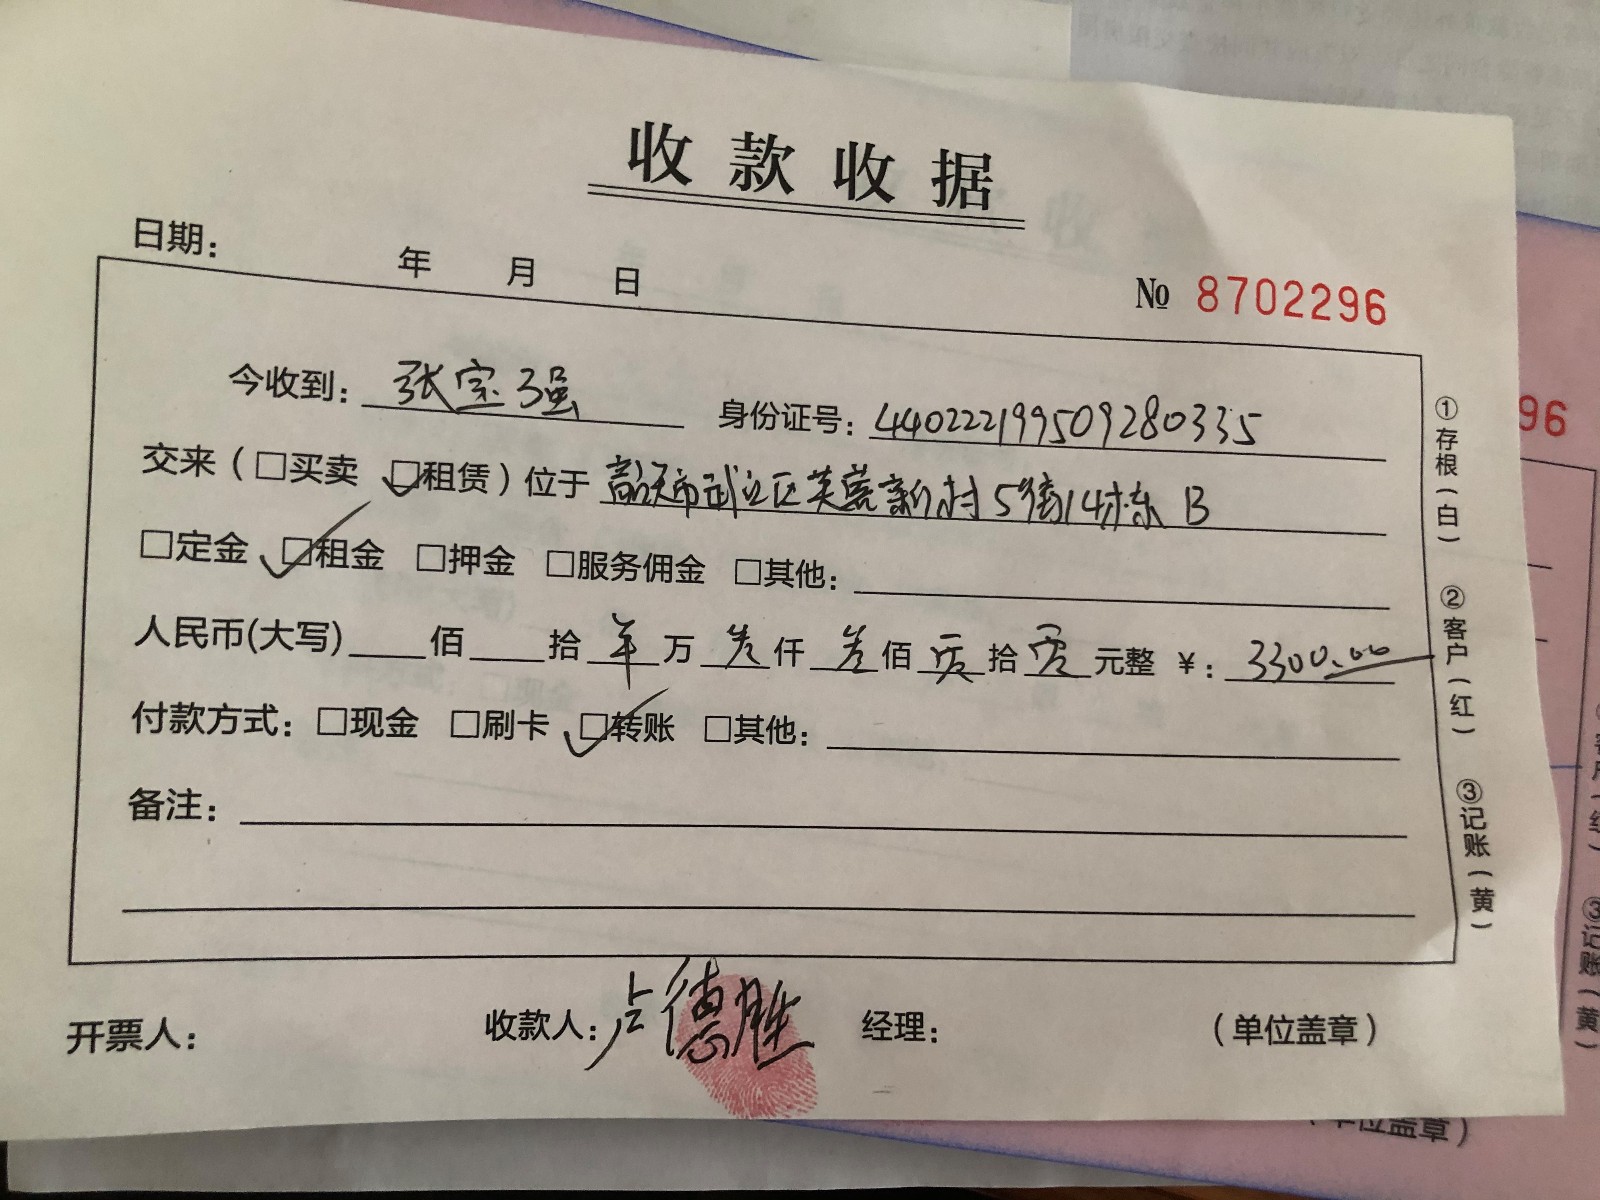 收款收据
日期： 年 月 日
№ 8702296
今收到：张宗强 身份证号：440222199509280335
交来（□买卖 ☑租赁）位于 韶关市武江区芙蓉新村5街14栋 B
□定金 ☑租金 □押金 □服务佣金 □其他：
人民币(大写)____佰____拾 万 叁仟 叁佰 零拾 零元整 ¥：3300.00
付款方式：□现金 □刷卡 ☑转账 □其他：
备注：
开票人： 收款人：卢德胜 经理： （单位盖章）
①存根（白） ②客户（红） ③记账（黄）
96
③记账（黄）
单位盖章）